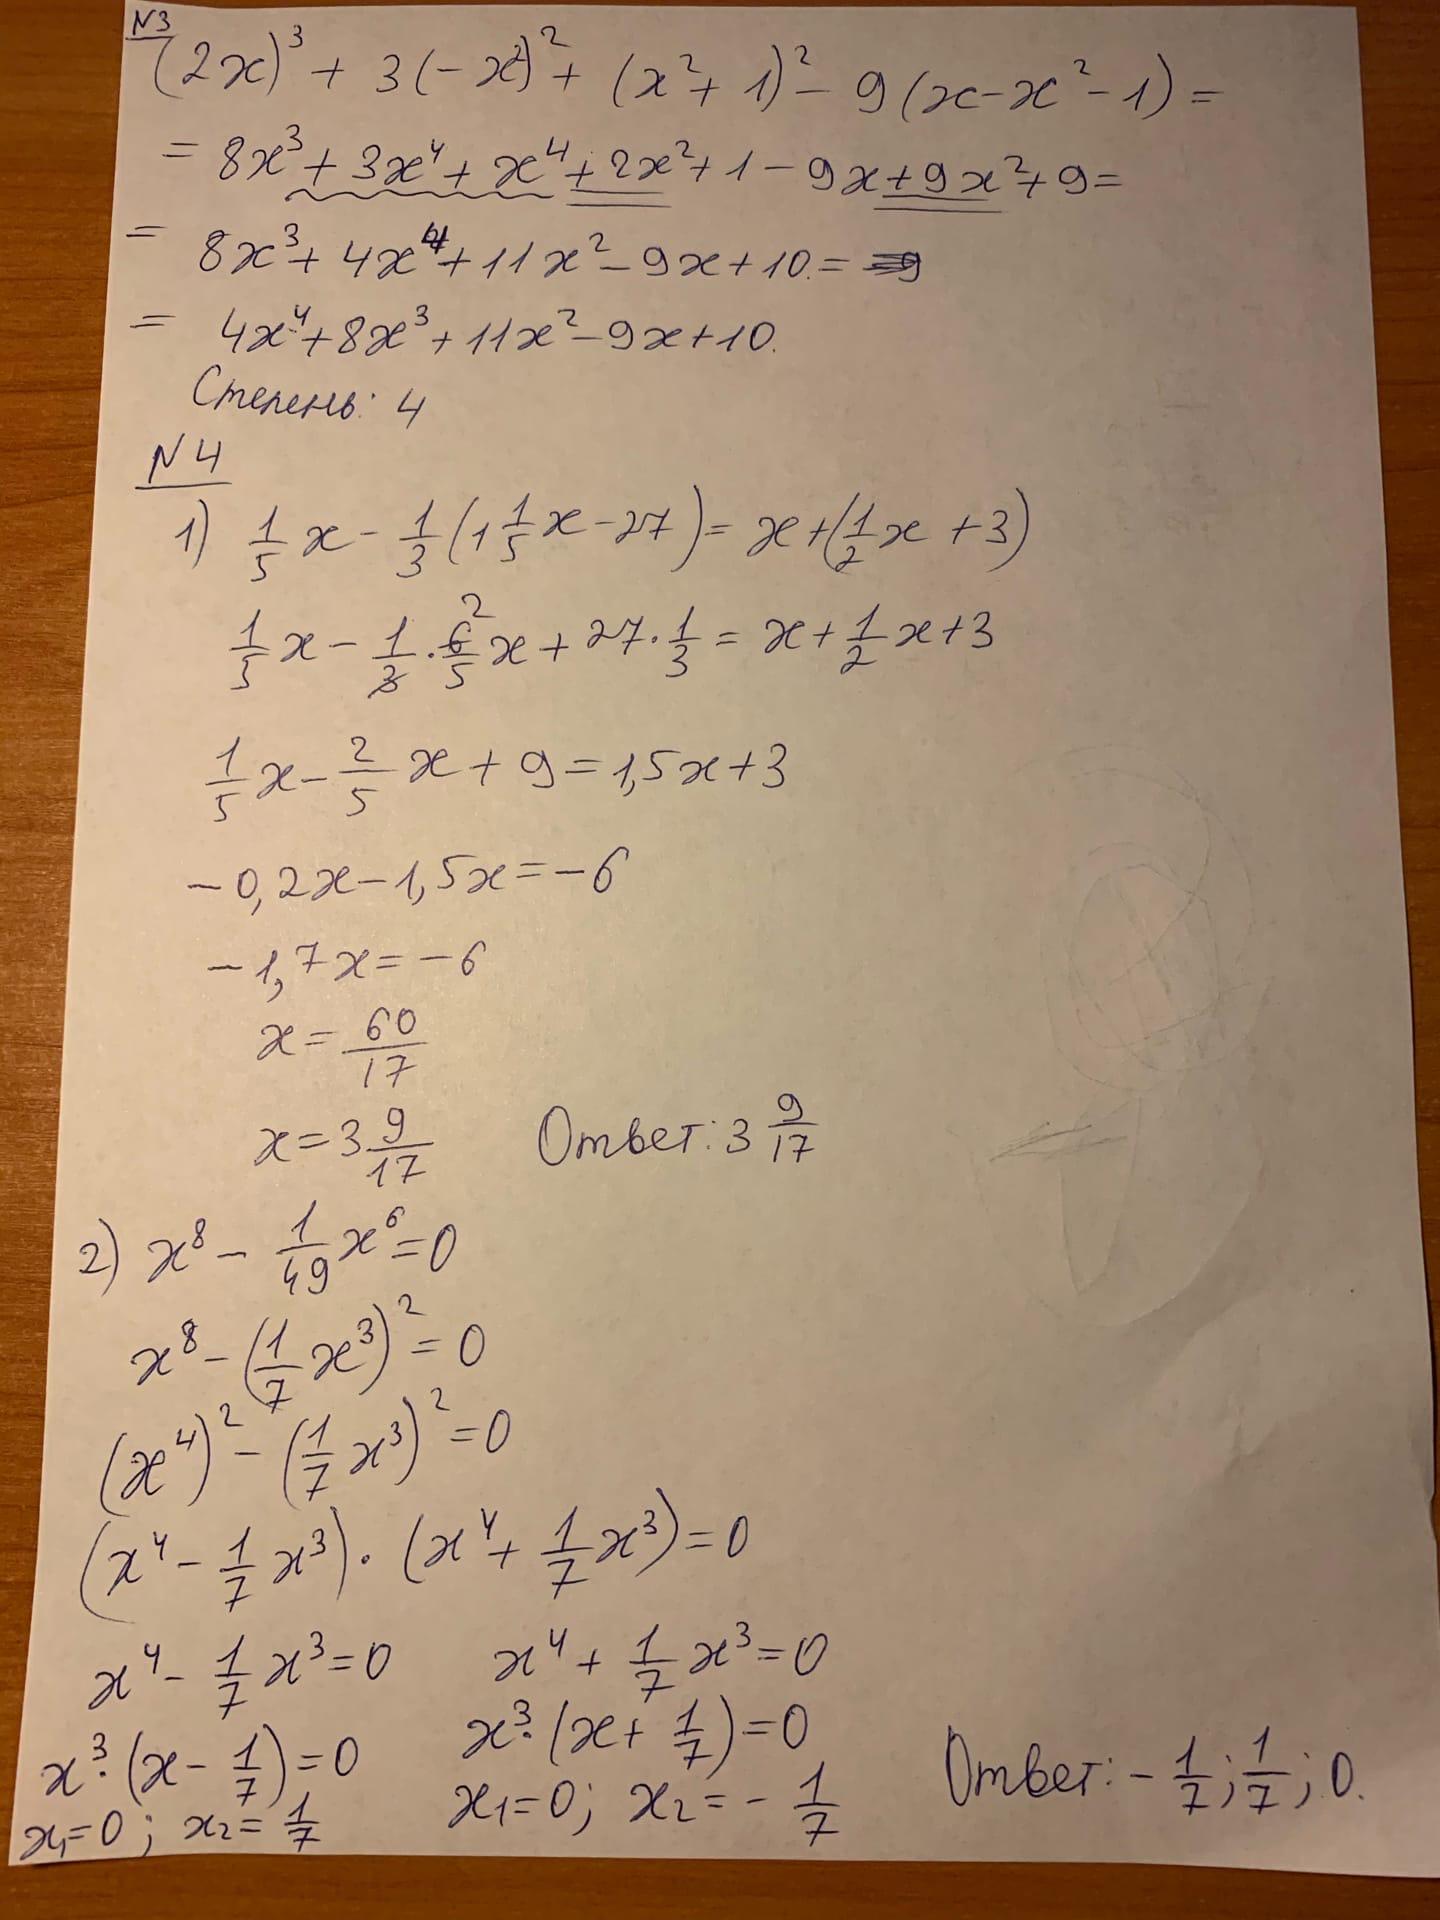 N3
(2x)³ + 3(-x²)² + (x²+1)² - 9(x-x²-1) =
= 8x³ + 3x⁴ + x⁴ + 2x² + 1 - 9x + 9x² + 9 =
= 8x³ + 4x⁴ + 11x² - 9x + 10 =
= 4x⁴ + 8x³ + 11x² - 9x + 10.
Степень: 4
N4
1) 1/5 x - 1/3 (1 1/5 x - 27) = x + (1/2 x + 3)
1/5 x - 1/3 · 6/5 2 x + 27 · 1/3 = x + 1/2 x + 3
1/5 x - 2/5 x + 9 = 1,5x + 3
-0,2x - 1,5x = -6
-1,7x = -6
x = 60/17
x = 3 9/17 Ответ: 3 9/17
2) x⁸ - 1/49 x⁶ = 0
x⁸ - (1/7 x³)² = 0
(x⁴)² - (1/7 x³)² = 0
(x⁴ - 1/7 x³) · (x⁴ + 1/7 x³) = 0
x⁴ - 1/7 x³ = 0 x⁴ + 1/7 x³ = 0
x³ · (x - 1/7) = 0 x³ · (x + 1/7) = 0
x₁ = 0 ; x₂ = 1/7 x₁ = 0; x₂ = - 1/7 Ответ: - 1/7 ; 1/7 ; 0.